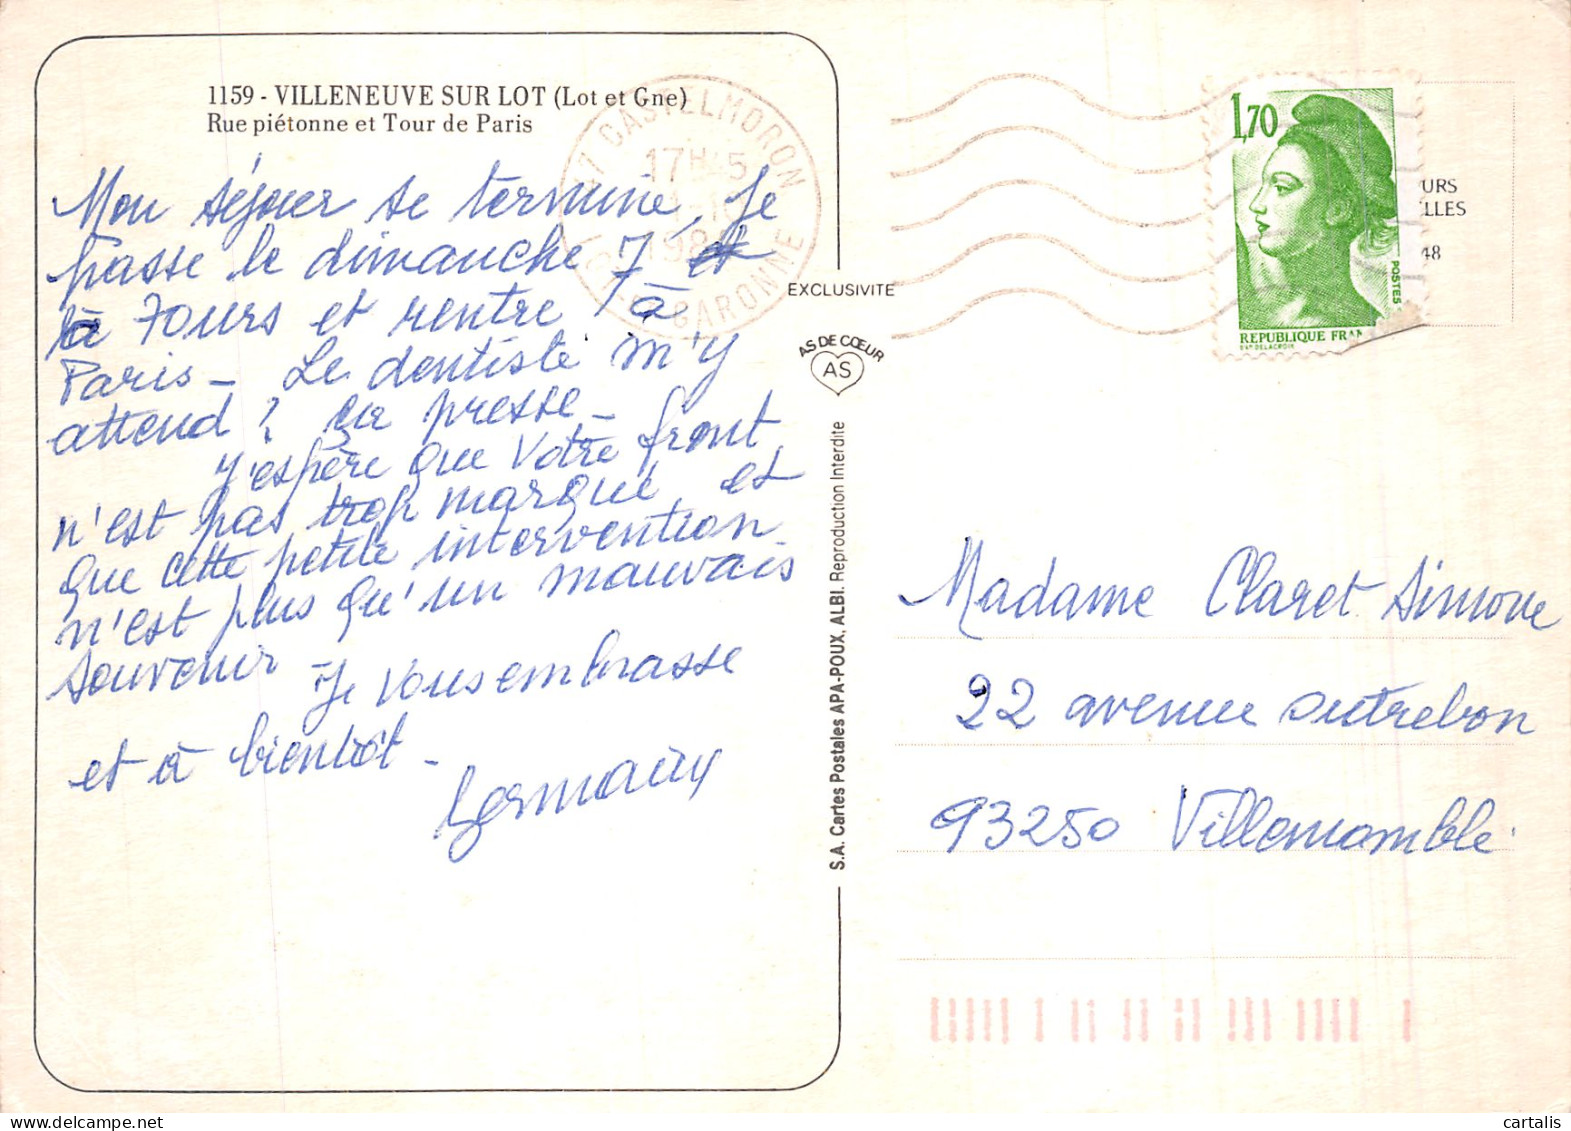 1159 - VILLENEUVE SUR LOT (Lot et Gne)
Rue piétonne et Tour de Paris
Mon séjour se termine, Je
passe le dimanche 7 et
à Tours et rentre à
Paris - Le dentiste m'y
attend ? ça presse -
J'espère que votre front
n'est pas trop marqué, et
que cette petite intervention
n'est plus qu'un mauvais
souvenir Je vous embrasse
et à bientôt -
Germaine
47 CASTELMORON
17H45
LOT-ET-GARONNE
EXCLUSIVITE
AS DE CŒUR
AS
S.A. Cartes Postales APA-POUX, ALBI. Reproduction Interdite
1,70
POSTES
REPUBLIQUE FRAN
EV. DELACROIX
URS
LLES
48
Madame Claret Simone
22 avenue Outrebon
93250 Villemomble
cartalis
www.delcampe.net